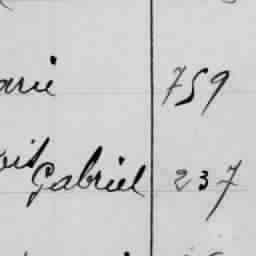 arie 759
ois Gabriel 237